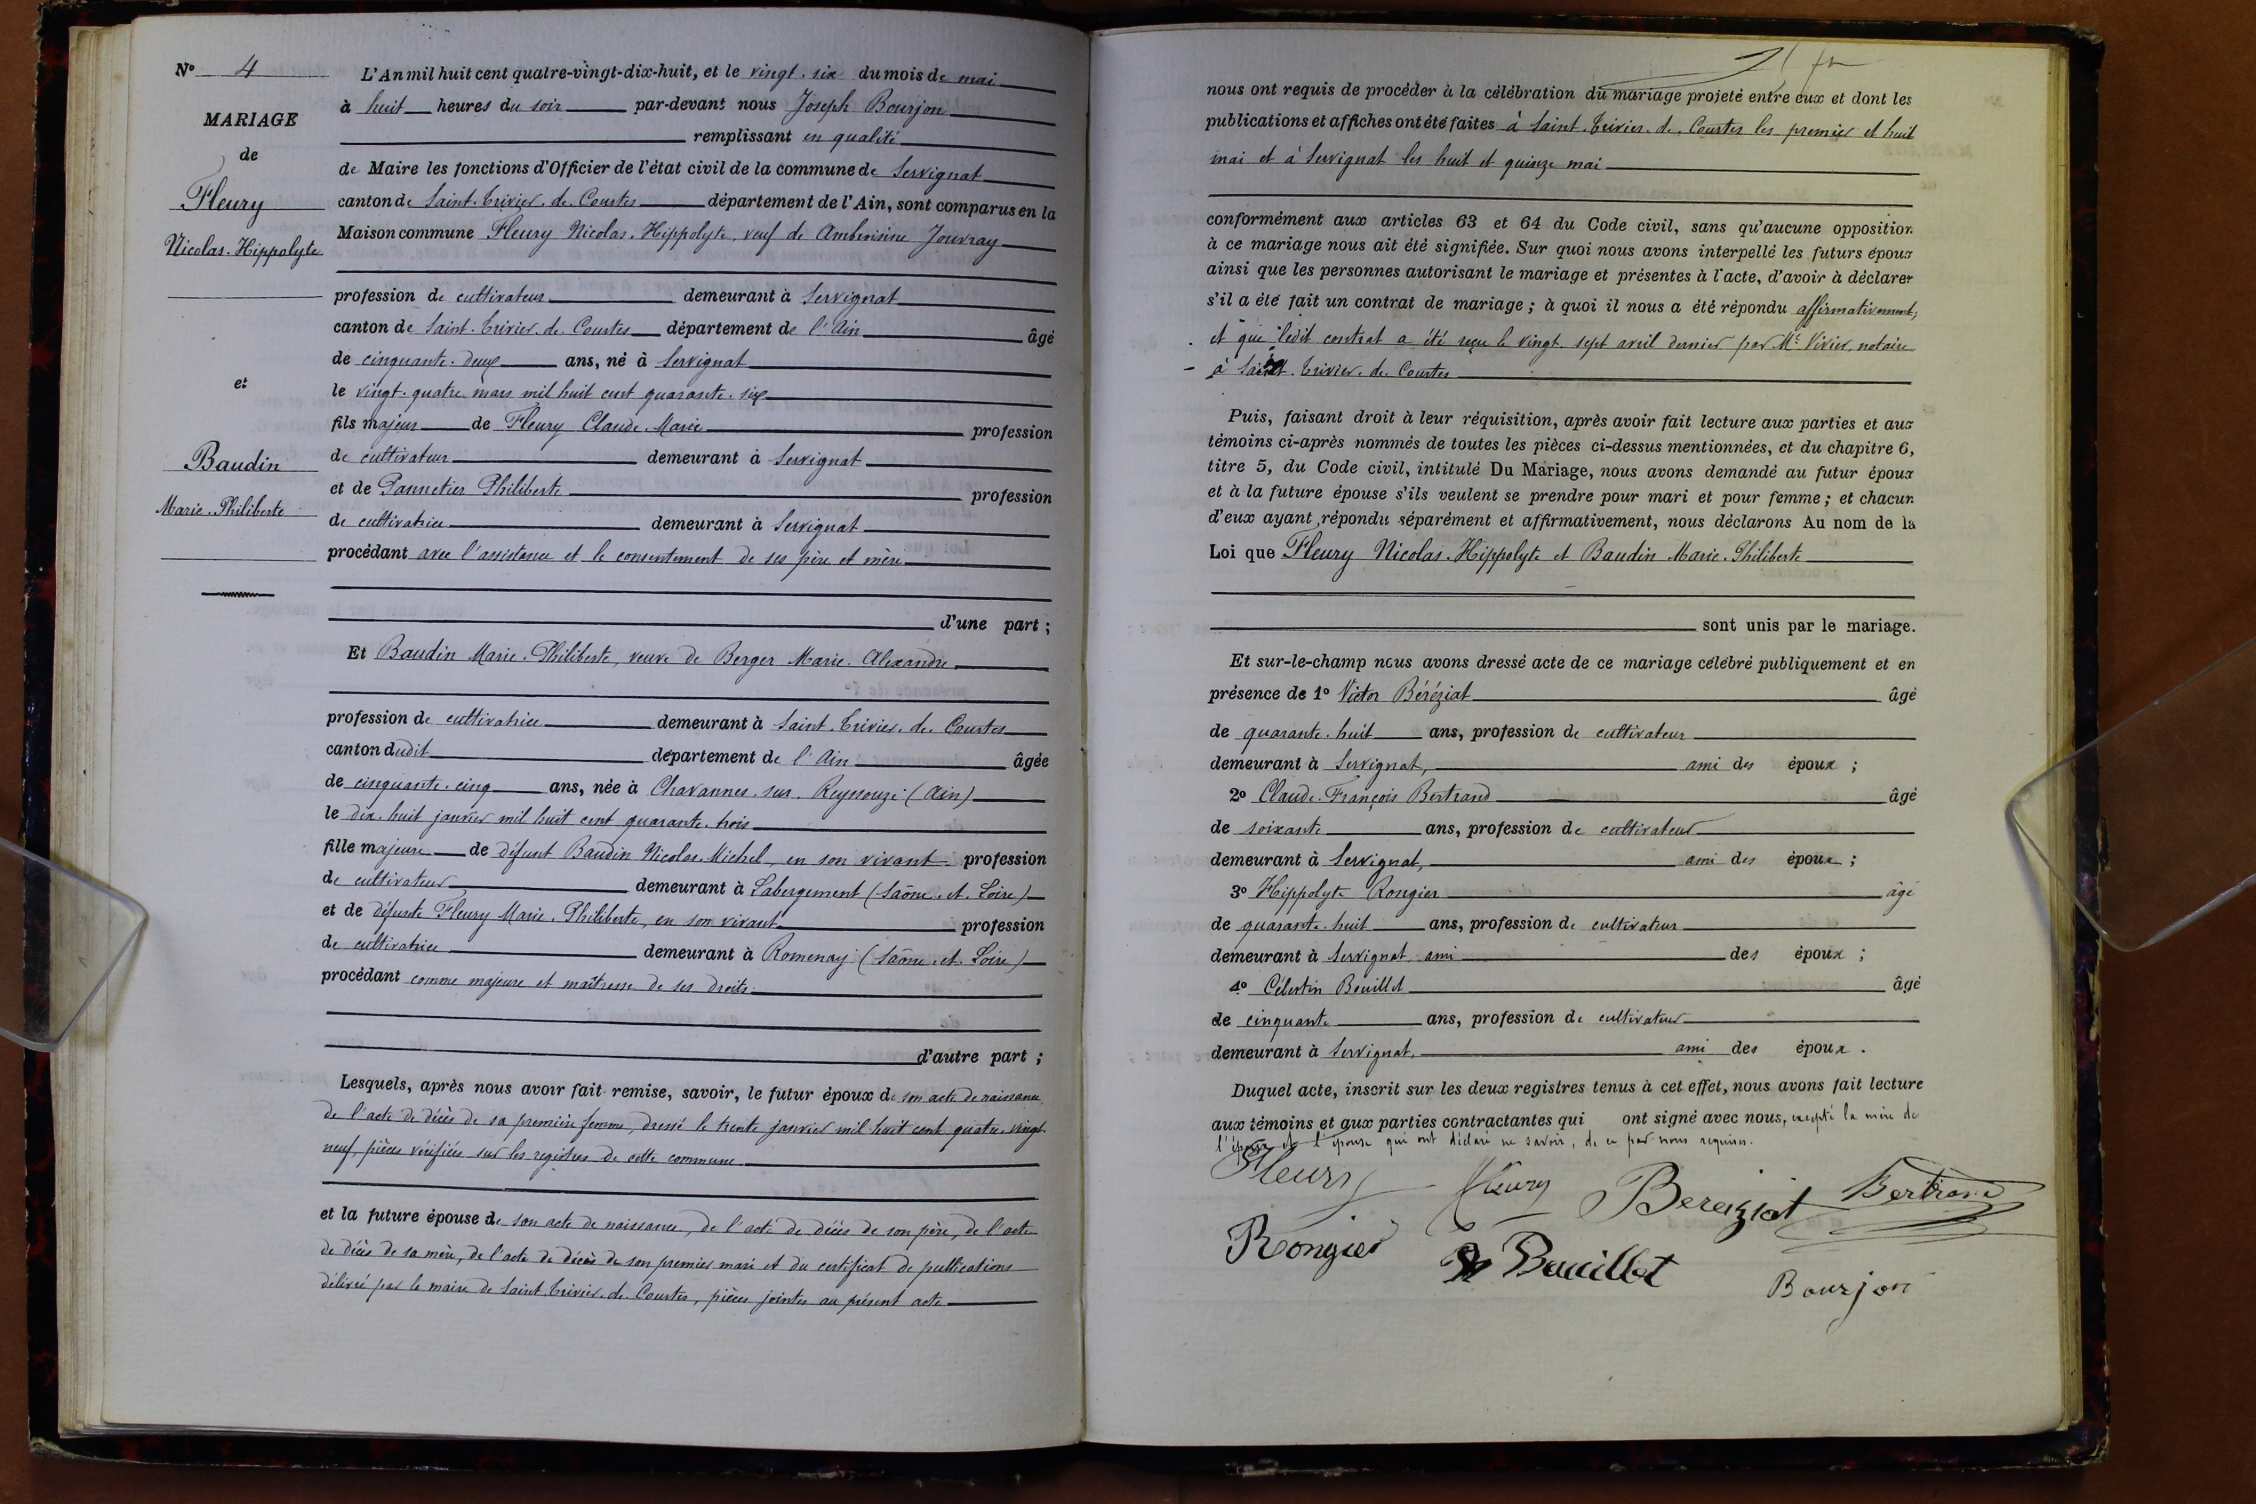 N° 4
MARIAGE
de
Fleury
Nicolas-Hippolyte
et
Baudin
Marie-Philiberte
L'An mil huit cent quatre-vingt-dix-huit, et le vingt-six du mois de mai
à huit heures du soir par-devant nous Joseph Bourjon
remplissant en qualité
de Maire les fonctions d'Officier de l'état civil de la commune de Servignat
canton de Saint-Trivier-de-Courtes département de l'Ain, sont comparus en la
Maison commune Fleury Nicolas-Hippolyte, veuf de Ambroisine Jouvray
profession de cultivateur demeurant à Servignat
canton de Saint-Trivier-de-Courtes département de l'Ain âgé
de cinquante-deux ans, né à Servignat
le vingt-quatre mars mil huit cent quarante-six
fils majeur de Fleury Claude-Marie profession
de cultivateur demeurant à Servignat
et de Pannetier Philiberte profession
de cultivatrice demeurant à Servignat
procédant avec l'assistance et le consentement de ses père et mère
d'une part ;
Et Baudin Marie-Philiberte, veuve de Berger Marie-Alexandre
profession de cultivatrice demeurant à Saint-Trivier-de-Courtes
canton dudit département de l'Ain âgée
de cinquante-cinq ans, née à Chavannes-sur-Reyssouze (Ain)
le dix-huit janvier mil huit cent quarante-trois
fille majeure de défunt Baudin Nicolas-Michel, en son vivant profession
de cultivateur demeurant à Labergement (Saône-et-Loire)
et de défunte Fleury Marie-Philiberte, en son vivant profession
de cultivatrice demeurant à Romenay (Saône-et-Loire)
procédant comme majeure et maîtresse de ses droits
d'autre part ;
Lesquels, après nous avoir fait remise, savoir, le futur époux de son acte de naissance
de l'acte de décès de sa première femme, dressé le trente janvier mil huit cent quatre-vingt-
neuf, pièces vérifiées sur les registres de cette commune
et la future épouse de son acte de naissance, de l'acte de décès de son père, de l'acte
de décès de sa mère, de l'acte de décès de son premier mari et du certificat de publications
délivré par le maire de Saint-Trivier-de-Courtes, pièces jointes au présent acte
nous ont requis de procéder à la célébration du mariage projeté entre eux et dont les
publications et affiches ont été faites à Saint-Trivier-de-Courtes les premier et huit
mai et à Servignat les huit et quinze mai
conformément aux articles 63 et 64 du Code civil, sans qu'aucune opposition
à ce mariage nous ait été signifiée. Sur quoi nous avons interpellé les futurs époux
ainsi que les personnes autorisant le mariage et présentes à l'acte, d'avoir à déclarer
s'il a été fait un contrat de mariage ; à quoi il nous a été répondu affirmativement,
et que ledit contrat a été reçu le vingt-sept avril dernier par Me Vivier, notaire
à Saint-Trivier-de-Courtes
Puis, faisant droit à leur réquisition, après avoir fait lecture aux parties et aux
témoins ci-après nommés de toutes les pièces ci-dessus mentionnées, et du chapitre 6,
titre 5, du Code civil, intitulé Du Mariage, nous avons demandé au futur époux
et à la future épouse s'ils veulent se prendre pour mari et pour femme ; et chacun
d'eux ayant répondu séparément et affirmativement, nous déclarons Au nom de la
Loi que Fleury Nicolas-Hippolyte et Baudin Marie-Philiberte
sont unis par le mariage.
Et sur-le-champ nous avons dressé acte de ce mariage célébré publiquement et en
présence de 1° Victor Béréziat âgé
de quarante-huit ans, profession de cultivateur
demeurant à Servignat, ami des époux ;
2° Claude-François Bertrand âgé
de soixante ans, profession de cultivateur
demeurant à Servignat, ami des époux ;
3° Hippolyte Rongier âgé
de quarante-huit ans, profession de cultivateur
demeurant à Servignat ami des époux ;
4° Célestin Bouillet âgé
de cinquante ans, profession de cultivateur
demeurant à Servignat, ami des époux.
Duquel acte, inscrit sur les deux registres tenus à cet effet, nous avons fait lecture
aux témoins et aux parties contractantes qui ont signé avec nous, excepté la mère de
l'époux et l'épouse qui ont déclaré ne savoir, de ce par nous requises.
Fleury Fleury Bereziat Bertrand
Rongier Bouillet
Bourjon